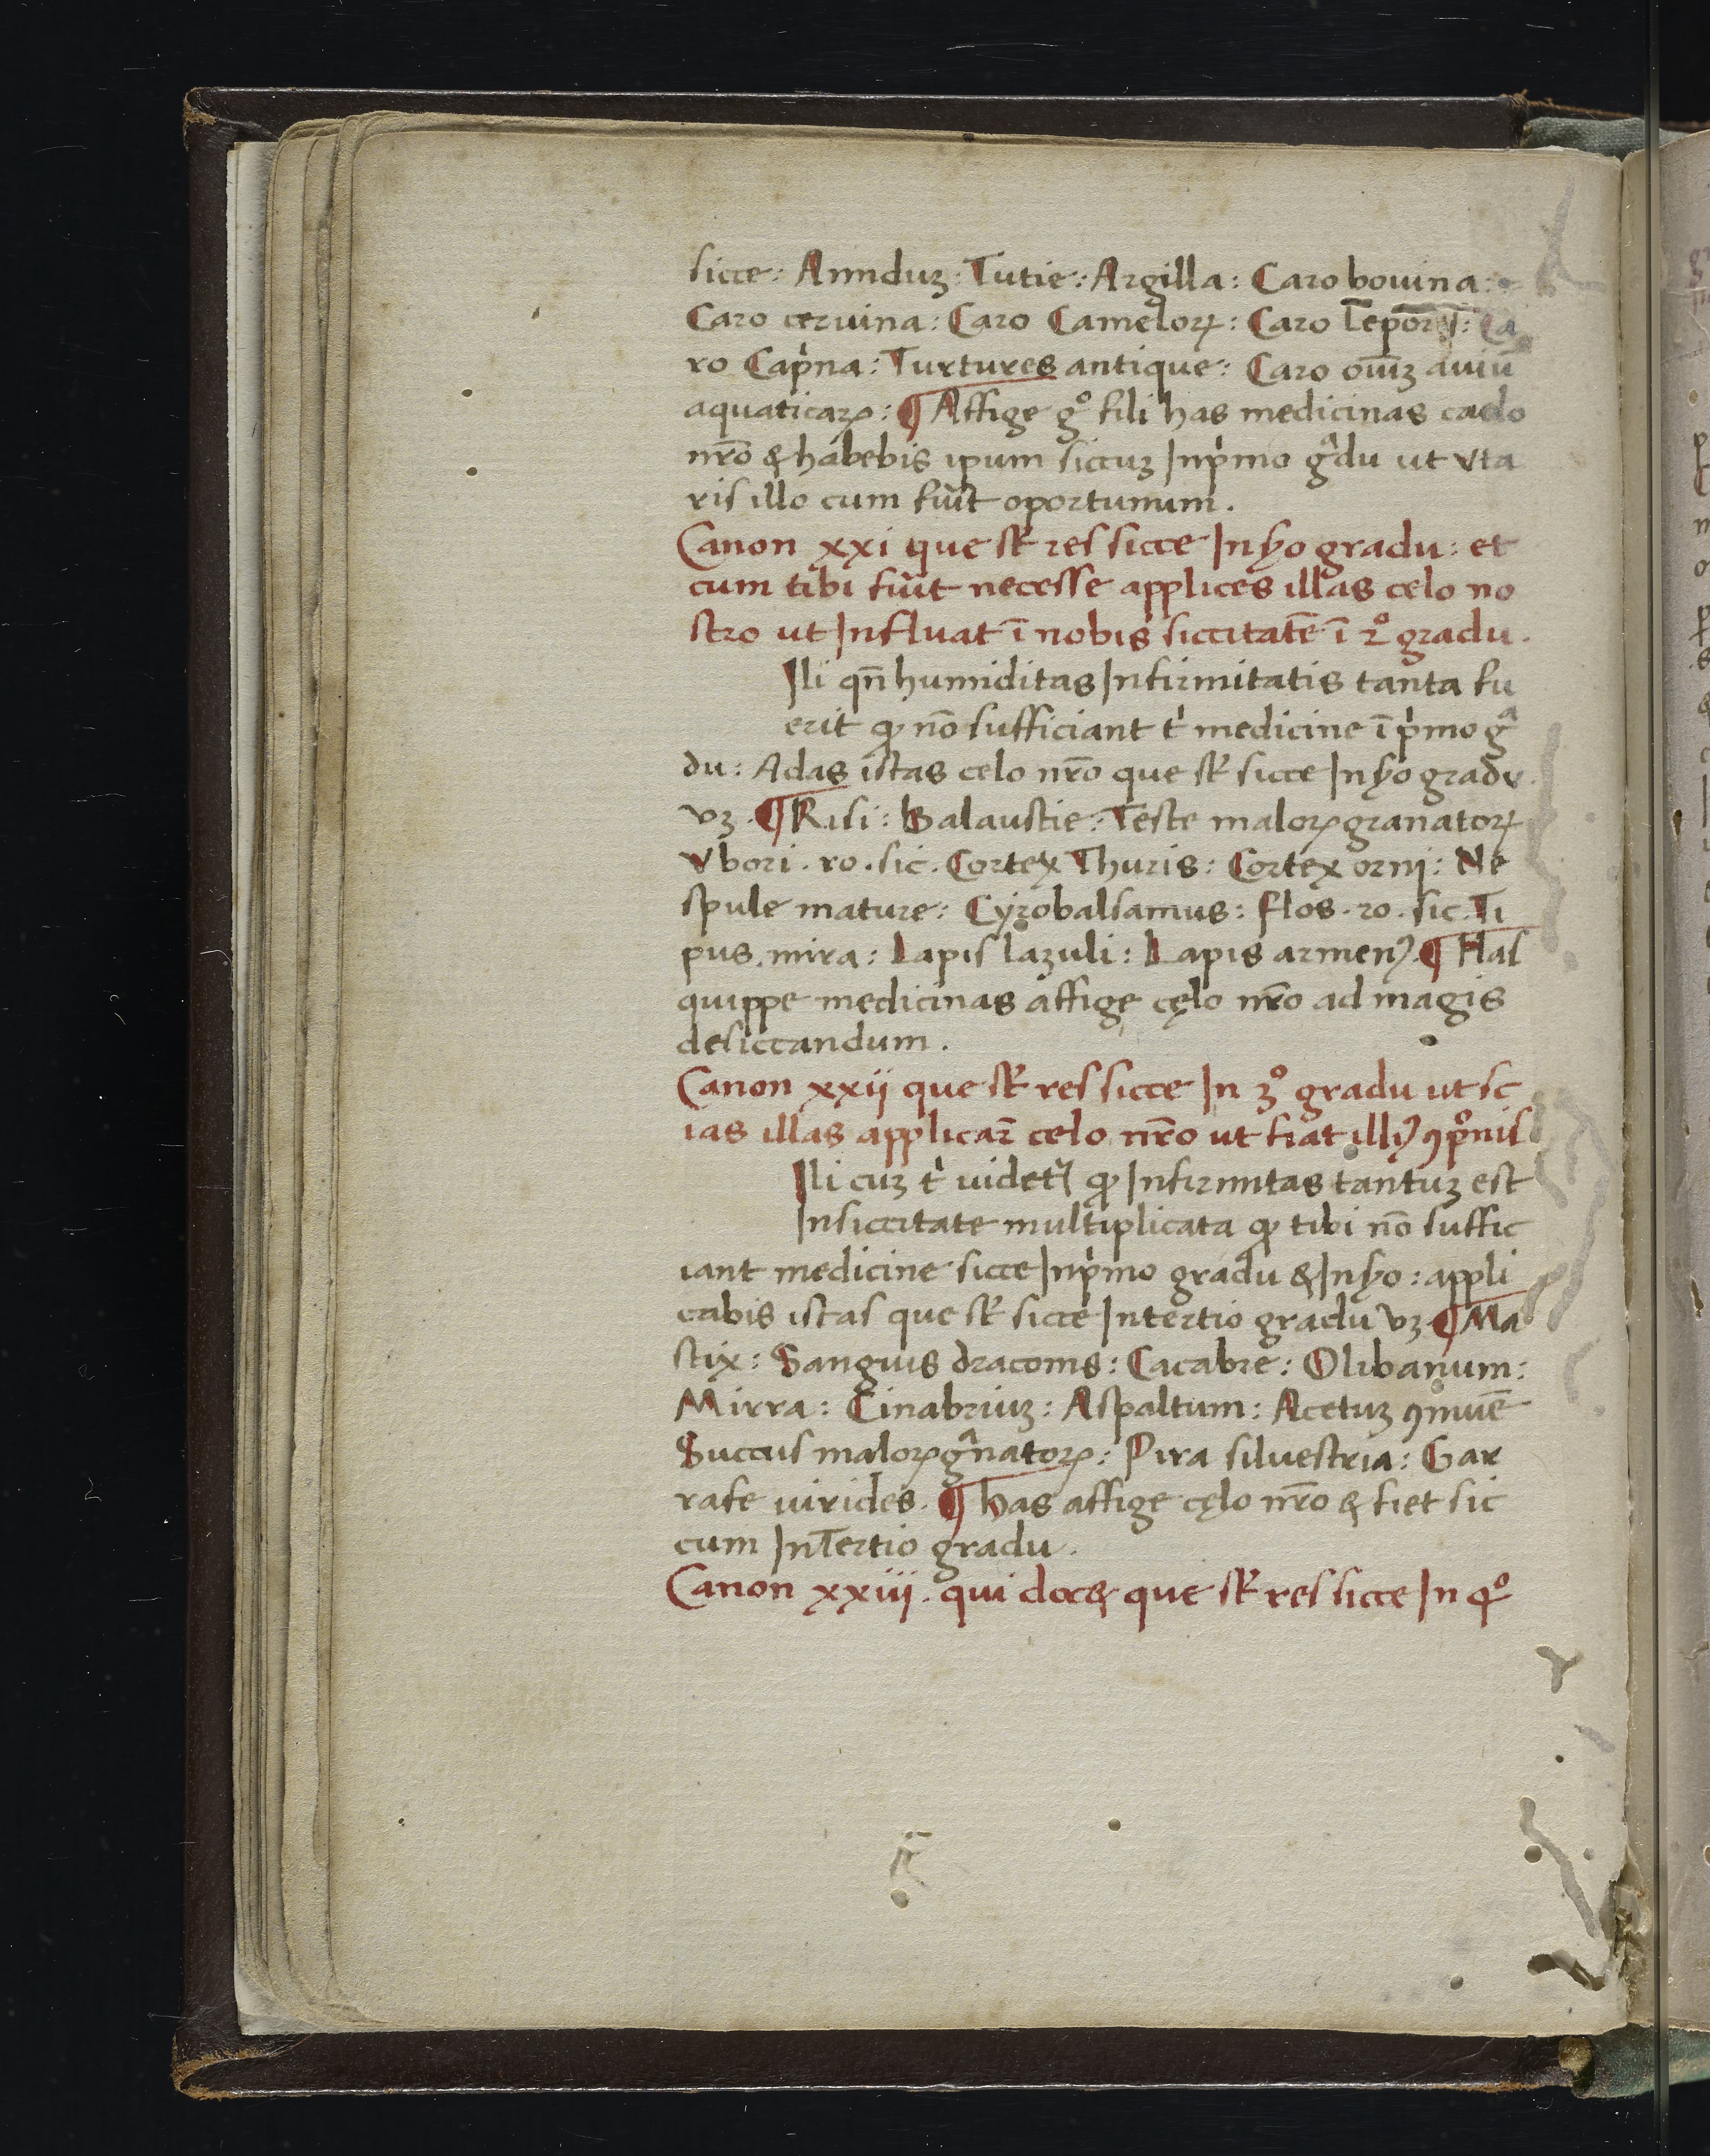 sicce: Amiduꝫ: Tutie: Argilla: Caro bouina:
Caro ceruina: Caro Camelorꝝ: Caro Ca
ro Cap̍na: Turtures antique: Caro om̄ꝫ auiū
aquaticaꝝ: ¶ Affige gͦ fili has medicinas caelo
nr̄o & habebis ipum siccuꝫ Inp̍mo gᷓdu ut vta
ris illo cum fuīt oportunum.
Canon xxi que st̄ res sicce In ẏo gradu: et
cum tibi fuīt necesse applices illas celo no
stro ut Influat ī nobis siccitatē ī 2ͦ gradu.
Ili qn̄ humiditas Infirmitatis tanta fu
erit ꝙ nō sufficiant t̍ medicine ī p̍mo gᷓ
du: Adas istas celo nr̄o que st̄ sicce In ẏo gradu.
vꝫ. ¶ Risi: Balaustie: Teste maloꝝ granatoꝝ
Vbori. ro. sic. Cortex Thuris: Cortex orni: Ne
spule mature: Cyrobalsamus: flos. ro. sic. Ti
pus. mira: Lapis lazuli: Lapis armenꝰ. ¶ Has
quippe medicinas affige cęlo nr̄o ad magis
desiccandum.
Canon xxii que st̄ res sicce In 3ͦ gradu ut sc
ias illas applicar̄ celo nr̄o ut fiat illiꝰ ꝯpͦnis
Ili cuꝫ t̍ uidetᷣ ꝙ Infirmitas tantuꝫ est
Insiccitate multiplicata ꝙ tibi nō suffic
iant medicine sicce Inp̍mo gradu & In ẏo: appli
cabis istas que st̄ sicce Intertio gradu vꝫ. ¶ Ma
stix: Sanguis draconis: Cacabre: Olibanum:
Mirra: Cinabriuꝫ: Aspaltum: Acetuꝫ
Succus maloꝝ gᷓnatoꝝ: Pira siluestria: Gar
rafe uirides. ¶ has affige cęlo nr̄o & fiet sic
cum InTertio gradu.
Canon xxiii. qui doc& que st̄ res sicce In qͦ